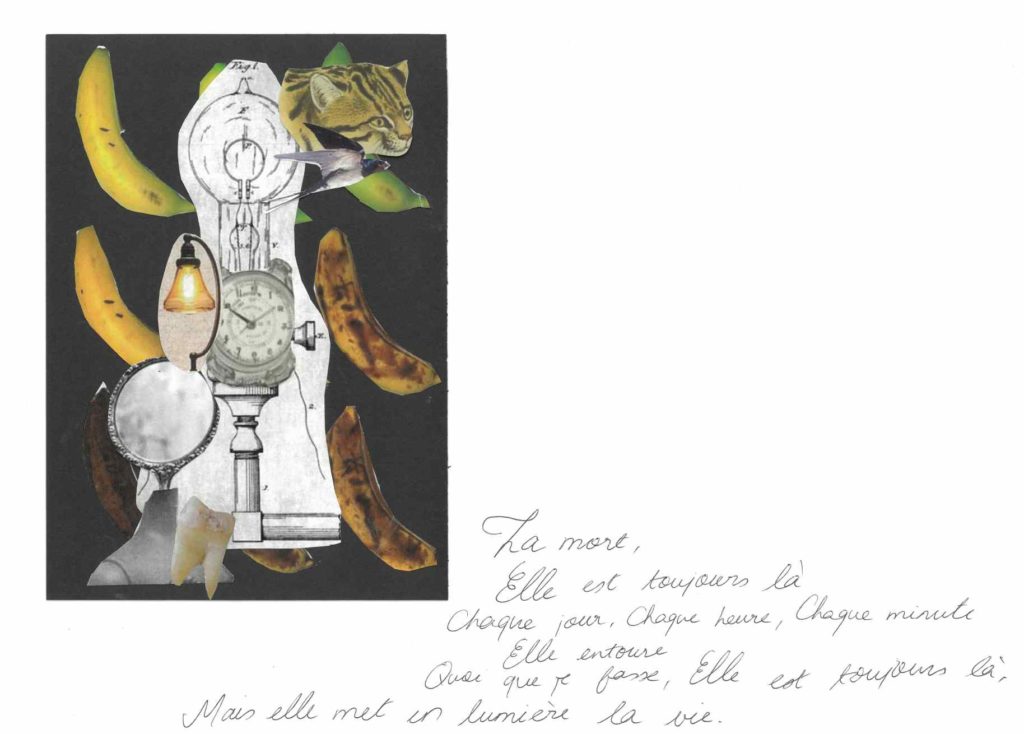 Fig. 1.
La mort,
Elle est toujours là
Chaque jour, Chaque heure, Chaque minute
Elle entoure
Quoi que je fasse, Elle est toujours là,
Mais elle met en lumière la vie.